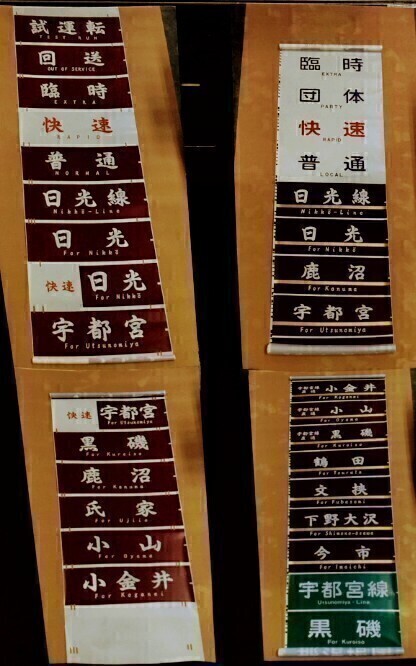 試運転
TEST RUN
回送
OUT OF SERVICE
臨時
EXTRA
快速
RAPID
普通
NORMAL
日光線
Nikkō-Line
日光
For Nikkō
快速 日光
For Nikkō
宇都宮
For Utsunomiya
臨時
EXTRA
団体
PARTY
快速
RAPID
普通
LOCAL
日光線
Nikkō-Line
日光
For Nikkō
鹿沼
For Kanuma
宇都宮
For Utsunomiya
快速 宇都宮
For Utsunomiya
黒磯
For Kuroiso
鹿沼
For Kanuma
氏家
For Ujiie
小山
For Oyama
小金井
For Koganei
宇都宮線直通 小金井
For Koganei
宇都宮線直通 小山
For Oyama
宇都宮線直通 黒磯
For Kuroiso
鶴田
For Tsuruta
文挟
For Fubasami
下野大沢
For Shimotsuke-ōsawa
今市
For Imaichi
宇都宮線
Utsunomiya-Line
黒磯
For Kuroiso